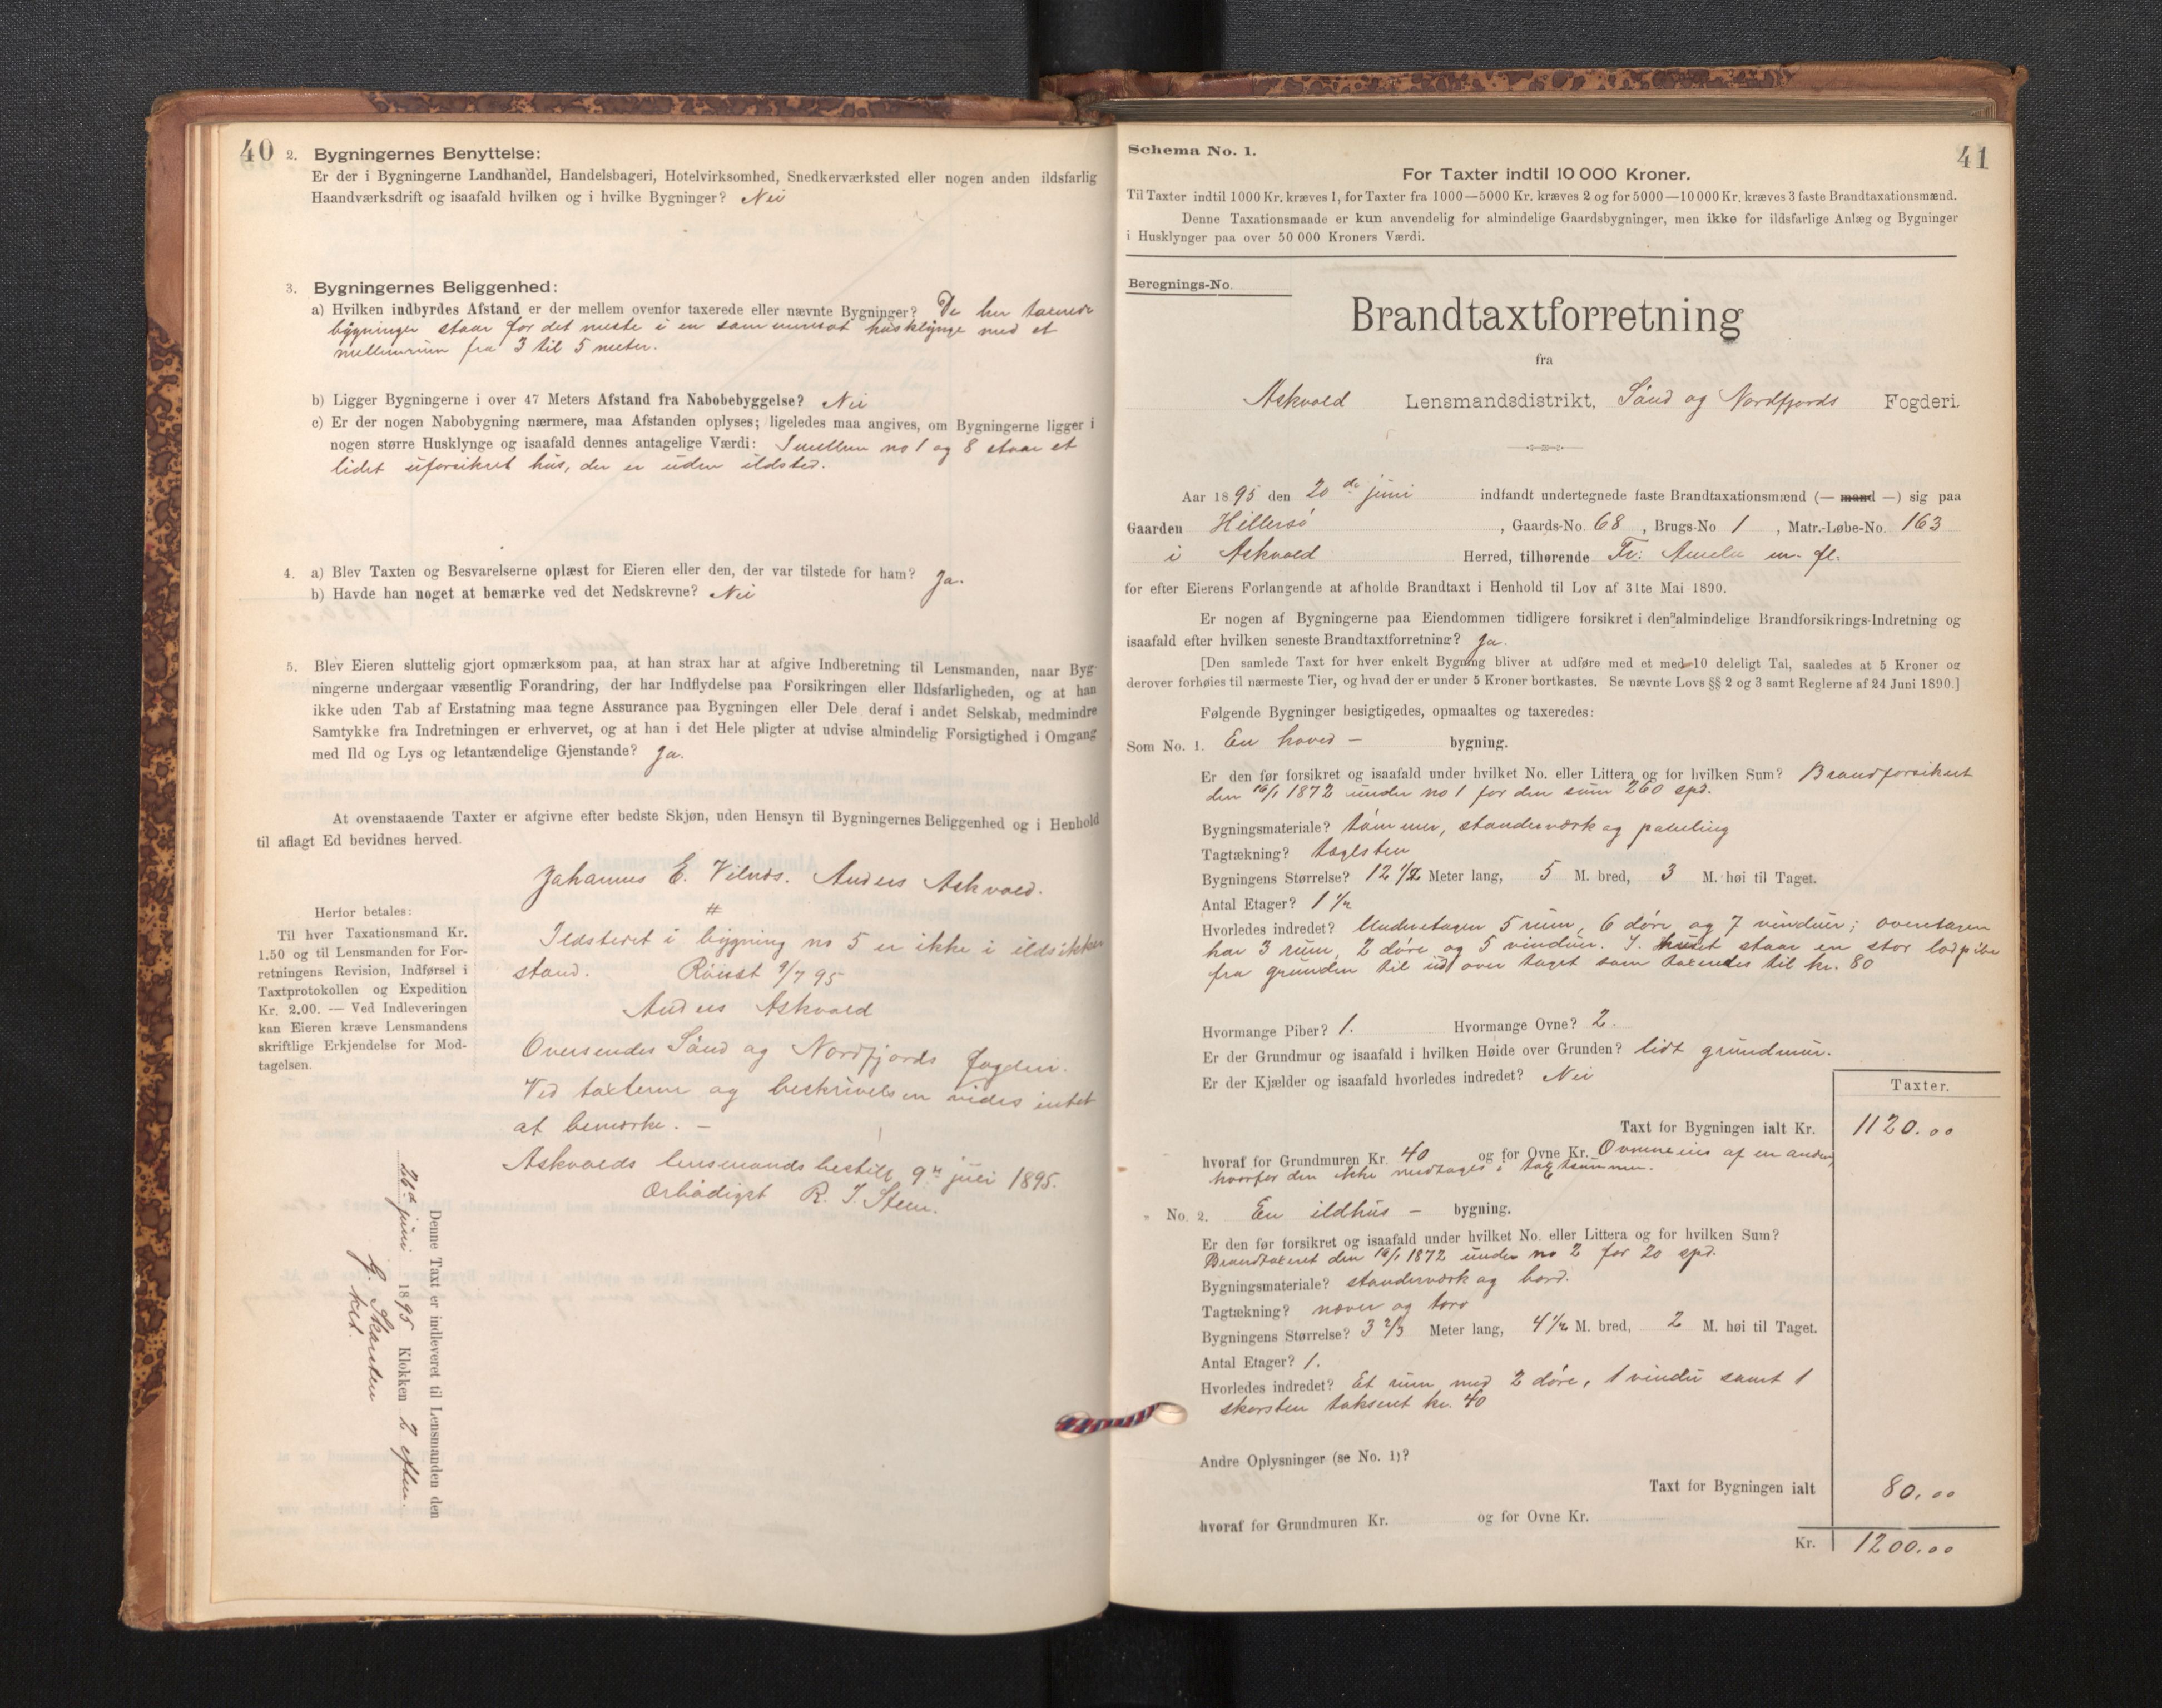 40
2. Bygningernes Benyttelse:
Er der i Bygningerne Landhandel, Handelsbageri, Hotelvirksomhed, Snedkerværksted eller nogen anden ildsfarlig
Haandværksdrift og isaafald hvilken og i hvilke Bygninger? Nei
3. Bygningernes Beliggenhed:
a) Hvilken indbyrdes Afstand er der mellem ovenfor taxerede eller nævnte Bygninger? De her taxerede
bygninger staar for det meste i en sammensat husklynge med et
mellemrum fra 3 til 5 meter.
b) Ligger Bygningerne i over 47 Meters Afstand fra Nabobebyggelse? Nei
c) Er der nogen Nabobygning nærmere, maa Afstanden oplyses; ligeledes maa angives, om Bygningerne ligger i
nogen større Husklynge og isaafald dennes antagelige Værdi: Imellem no 1 og 8 staar et
lidet uforsikret hus, der er uden ildsted.
4. a) Blev Taxten og Besvarelserne oplæst for Eieren eller den, der var tilstede for ham? Ja.
b) Havde han noget at bemærke ved det Nedskrevne? Nei
5. Blev Eieren sluttelig gjort opmærksom paa, at han strax har at afgive Indberetning til Lensmanden, naar Byg-
ningerne undergaar væsentlig Forandring, der har Indflydelse paa Forsikringen eller Ildsfarligheden, og at han
ikke uden Tab af Erstatning maa tegne Assurance paa Bygningen eller Dele deraf i andet Selskab, medmindre
Samtykke fra Indretningen er erhvervet, og at han i det Hele pligter at udvise almindelig Forsigtighed i Omgang
med Ild og Lys og letantændelige Gjenstande? Ja.
At ovenstaaende Taxter er afgivne efter bedste Skjøn, uden Hensyn til Bygningernes Beliggenhed og i Henhold
til aflagt Ed bevidnes herved.
Johannes E. Anders Askvold.
Herfor betales:
Til hver Taxationsmand Kr.
1.50 og til Lensmanden for For-
retningens Revision, Indførsel i
Taxtprotokollen og Expedition
Kr. 2.00. — Ved Indleveringen
kan Eieren kræve Lensmandens
skriftlige Erkjendelse for Mod-
tagelsen.
#
Ildstedet i bygning no 5 er ikke i ildsikker
stand. 9/7 95
Anders Askvold
Oversendes Sønd og Nordfjords fogderi.
Ved taxterne og beskrivelsen vides intet
at bemærke. –
Askvolds lensmandsbestill 9de juli 1895.
Ærbødigst R. J Steen.
Denne Taxt er indleveret til Lensmanden den
26de juni 1895 Klokken 2 efterm.
41
Schema No. 1.
For Taxter indtil 10 000 Kroner.
Til Taxter indtil 1000 Kr. kræves 1, for Taxter fra 1000—5000 Kr. kræves 2 og for 5000—10 000 Kr. kræves 3 faste Brandtaxationsmænd.
Denne Taxationsmaade er kun anvendelig for almindelige Gaardsbygninger, men ikke for ildsfarlige Anlæg og Bygninger
i Husklynger paa over 50 000 Kroners Værdi.
Beregnings-No.
Brandtaxtforretning
fra
Askvold Lensmandsdistrikt, Sønd og Nordfjords Fogderi.
Aar 1895 den 20de juni indfandt undertegnede faste Brandtaxationsmænd (— mand —) sig paa
Gaarden Hillersø, Gaards-No. 68, Brugs-No 1, Matr.-Løbe-No. 163
i Askvold Herred, tilhørende m. fl.
for efter Eierens Forlangende at afholde Brandtaxt i Henhold til Lov af 31te Mai 1890.
Er nogen af Bygningerne paa Eiendommen tidligere forsikret i den almindelige Brandforsikrings-Indretning og
isaafald efter hvilken seneste Brandtaxtforretning? Ja.
[Den samlede Taxt for hver enkelt Bygning bliver at udføre med et med 10 deleligt Tal, saaledes at 5 Kroner og
derover forhøies til nærmeste Tier, og hvad der er under 5 Kroner bortkastes. Se nævnte Lovs §§ 2 og 3 samt Reglerne af 24 Juni 1890.]
Følgende Bygninger besigtigedes, opmaaltes og taxeredes:
Som No. 1. En hoved – bygning.
Er den før forsikret og isaafald under hvilket No. eller Littera og for hvilken Sum? Brandforsikret
den 16/1 1872 under no 1 for den sum 260 spd.
Bygningsmateriale? tømmer, standerværk og paneling
Tagtækning? taglsten
Bygningens Størrelse? 12 1/2 Meter lang, 5 M. bred, 3 M. høi til Taget.
Antal Etager? 1 1/2
Hvorledes indredet? Underetagen 5 rum, 6 døre og 7 vinduer; overetagen
har 3 rum, 2 døre og 5 vinduer. I huset staar en stor lodpibe
fra grunden til ud over taget som taxeredes til kr. 80
Hvormange Piber? 1. Hvormange Ovne? 2.
Er der Grundmur og isaafald i hvilken Høide over Grunden? lidt grundmur.
Er der Kjælder og isaafald hvorledes indredet? Nei
Taxter.
Taxt for Bygningen ialt Kr. 1120.00
hvoraf for Grundmuren Kr. 40 og for Ovne Kr. Ovnene eies af en anden,
hvorfor den ikke medtages i taxtsummen.
" No. 2. En ildhus – bygning.
Er den før forsikret og isaafald under hvilket No. eller Littera og for hvilken Sum?
Brandtaxeret den 16/1 1872 under no 2 for 20 spd.
Bygningsmateriale? standerværk og bord.
Tagtækning? næver og torv
Bygningens Størrelse? 3 2/3 Meter lang, 4 1/2 M. bred, 2 M. høi til Taget.
Antal Etager? 1.
Hvorledes indredet? Et rum med 2 døre, 1 vindu samt 1
skorsten takseret kr. 40
Andre Oplysninger (se No. 1)?
Taxt for Bygningen ialt 80.00
hvoraf for Grundmuren Kr. og for Ovne Kr.
Kr. 1200.00